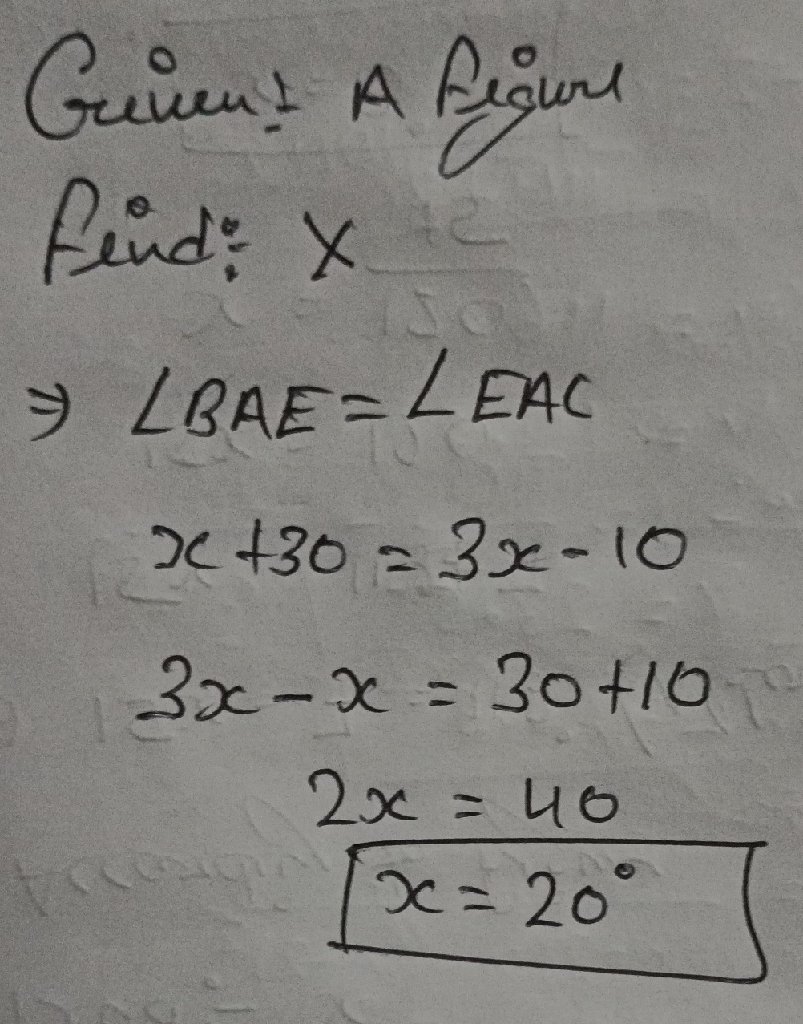 Given: A figure
Find: X
⇒ ∠BAE = ∠EAC
x+30 = 3x-10
3x-x = 30+10
2x = 40
x = 20°